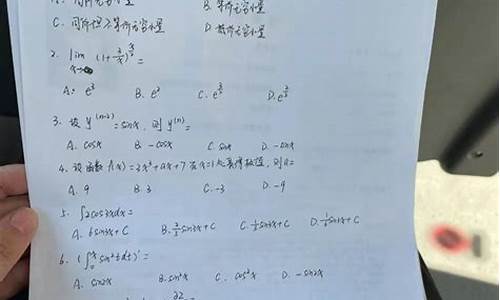 A. 同阶无穷小量 B. 等价无穷小量
C. 同阶但不等价无穷小量 D. 高阶无穷小量
2. lim x→∞ (1+2/x)^
A. e³ B. e² C. D.
3. 设 y⁽ⁿ⁻²⁾=sinx, 则 y⁽ⁿ⁾=
A. cosx B. -cosx C. sinx D. -sinx
4. 设函数 f(x)=2x³+ax+7 在x=1处取得极值, 则a=
A. 9 B. 3 C. -3 D. -9
5. ∫2cos3xdx=
A. 6sin3x+C B. 2/3 sin3x+C C. 1/3 sin3x+C D. sin3x+C
6. (∫₀ˣ sin²t dt)'=
A. sin2x B. sin²x C. cos²x D. -sin2x